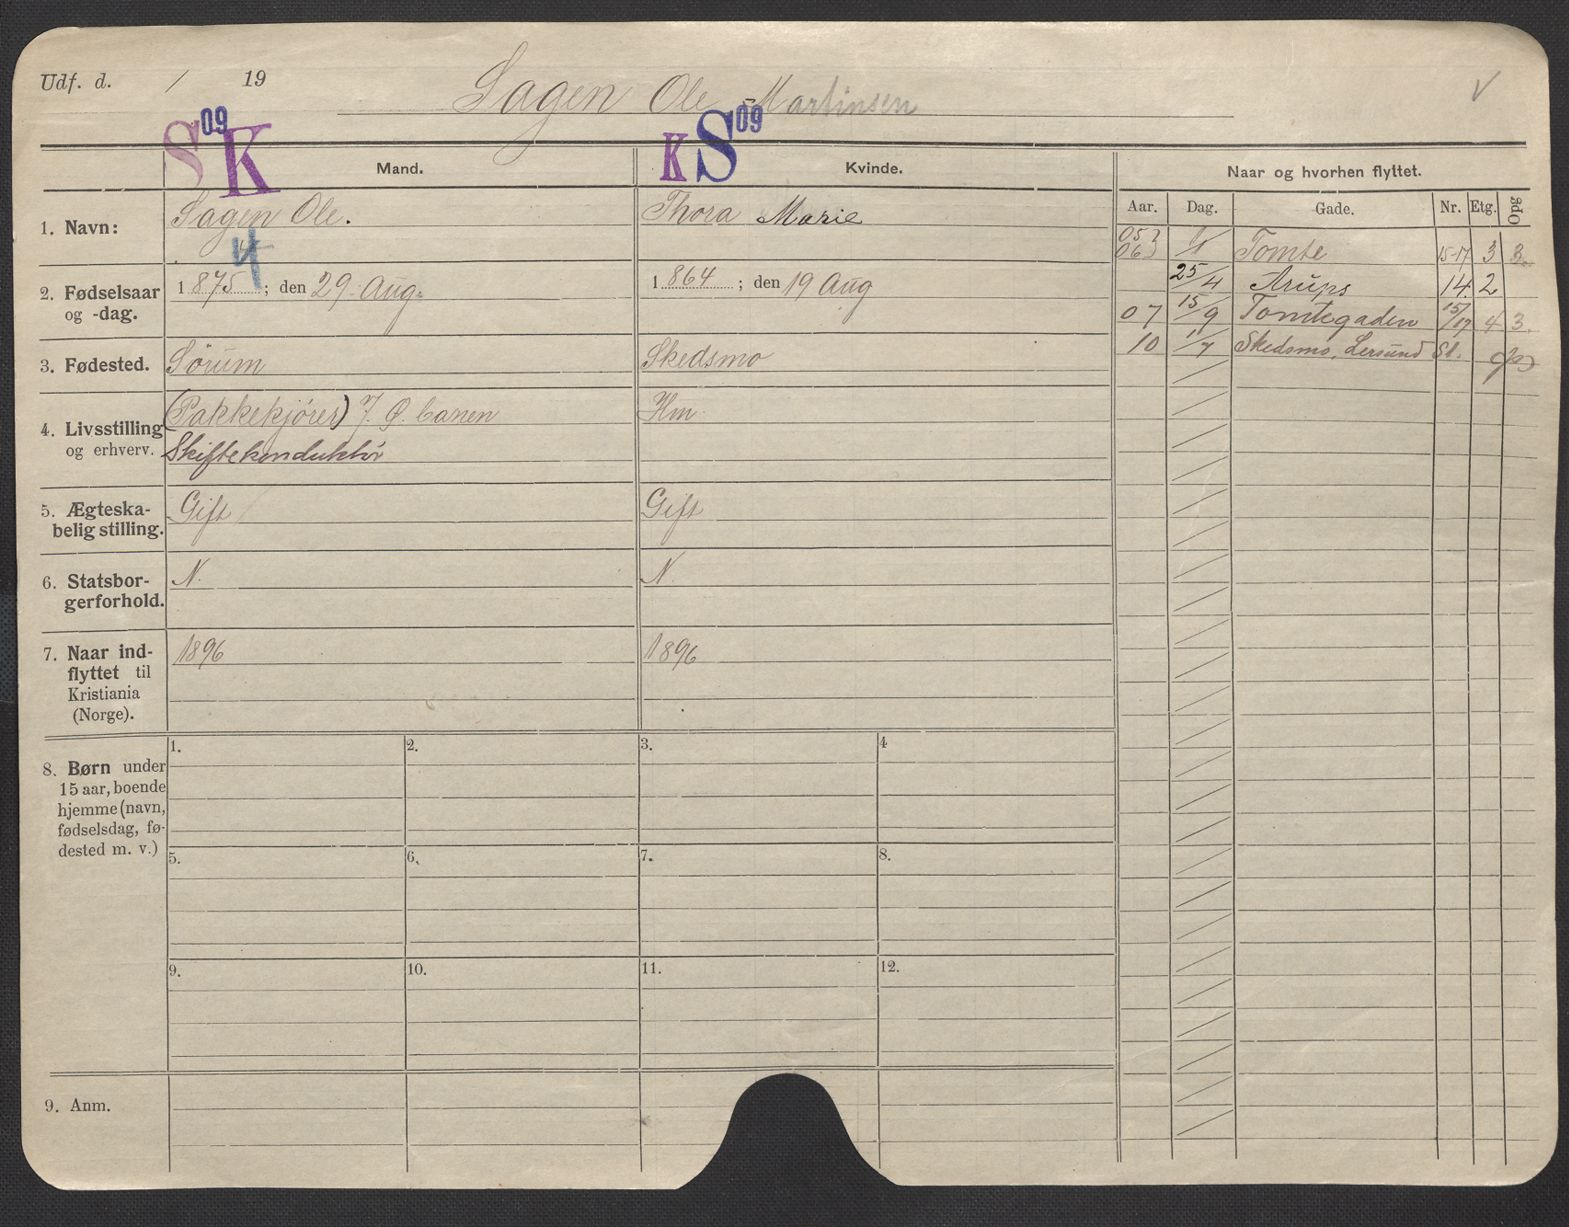 Udf. d. / 19
Sagen Ole Martinsen
S 09 K
K S 09
Mand.
Kvinde.
Naar og hvorhen flyttet.
Aar. Dag. Gade. Nr. Etg. Opg
1. Navn: Sagen Ole. Thora Marie
4
2. Fødselsaar og -dag. 1875; den 29 Aug. 1864; den 19 Aug
3. Fødested. Sørum Skedsmo
4. Livsstilling og erhverv. (Pakkekjører) J. Ø. banen Hm.
Skiftekonduktør
5. Ægteska-
belig stilling. Gift Gift
6. Statsbor-
gerforhold. N. N.
7. Naar ind-
flyttet til
Kristiania
(Norge). 1896 1896
8. Børn under
15 aar, boende
hjemme (navn,
fødselsdag, fø-
dested m. v.)
1. 2. 3. 4
5. 6. 7. 8.
9. 10. 11. 12.
9. Anm.
05
06 Tomte 15-17 3 3.
25/4 Arups 14 2
07 15/9 Tomtegaden 15/17 4 3.
10 1/7 Skedsmo, Lersund St.